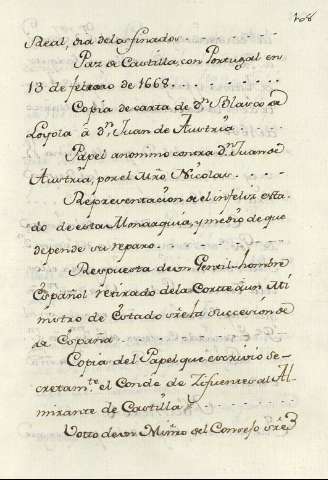 168
Real, dia de los finados
Paz de Castilla, con Portugal en
13 de febrero de 1668.
Copia de carta de Dn. Blasco de
Loyola á Dn. Juan de Austria
Papel anonimo contra Dn. Juan de
Austria, por el Mro. Nicolas.
Representacion de el infeliz esta-
do de esta Monarquia, y medio de que
depende su reparo.
Respuesta de un Gentil-hombre
Español retirado de la Corte á un Mi
nistro de Estado sre la succesion de
de España
Copia del Papel que escrivio se-
cretamte. el Conde de Zifuentes al Al-
mirante de Castilla
Votto de un Minro. del Consejo sre